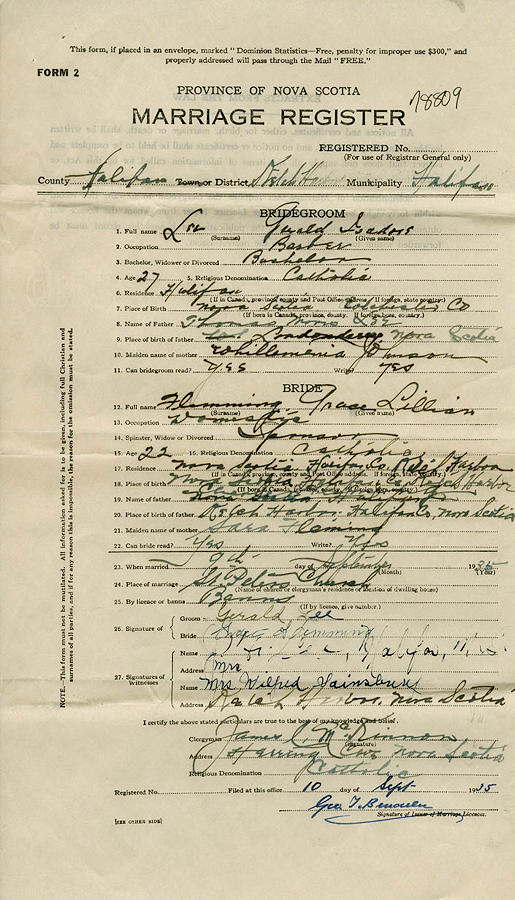 This form, if placed in an envelope, marked "Dominion Statistics—Free, penalty for improper use $300," and
properly addressed will pass through the Mail "FREE."
FORM 2
PROVINCE OF NOVA SCOTIA
78809
MARRIAGE REGISTER
REGISTERED No.
(For use of Registrar General only)
County Halifax Town or District Ketch Harbor Municipality Halifax
BRIDEGROOM
1. Full name Lee Gerald Isadore
(Surname) (Given name)
2. Occupation Barber
3. Bachelor, Widower or Divorced Bachelor
4. Age 27 5. Religious Denomination Catholic
6. Residence Halifax
(If in Canada, province, county and Post Office address. If foreign, state country.)
7. Place of Birth Nova Scotia Colchester Co
(If born in Canada, province, county. If foreign born, country.)
8. Name of Father Thomas Lee
9. Place of birth of father Londonderry Nova Scotia
10. Maiden name of mother Whillomenia Johnson
11. Can bridegroom read? Yes Write? Yes
BRIDE
12. Full name Flemming Grace Lillian
(Surname) (Given name)
13. Occupation Domestic
14. Spinster, Widow or Divorced
15. Age 22 16. Religious Denomination Catholic
17. Residence Nova Scotia Halifax Co. Ketch Harbor
(If in Canada, province, county and Post Office address. If foreign, state country.)
18. Place of Birth Nova Scotia, Halifax Co Ketch Harbor
(If born in Canada, province, county. If foreign born, country.)
19. Name of father
20. Place of birth of father Ketch Harbor Halifax Co, Nova Scotia
21. Maiden name of mother Sara Fleming
22. Can bride read? Yes Write? Yes
23. When married 9th day of September 1935
(Month) (Year)
24. Place of marriage St. Peters Church
(Name of church or clergyman's residence or location of dwelling house)
25. By licence or banns Banns
(If by license, give number.)
26. Signature of Groom Gerald Lee
Bride Grace Flemming
27. Signatures of Witnesses
Name
Address Mrs
Name Mrs Wilfred Hainsbury
Address Ketch Harbor, Nova Scotia
I certify the above stated particulars are true to the best of my knowledge and belief.
Clergyman James C. McKinnon
(Signature)
Address Herring Cove Nova Scotia
Religious Denomination Catholic
Registered No. Filed at this office 10 day of Sept 1935
Geo T.
Signature of Issuer of Marriage Licences.
[SEE OTHER SIDE]
NOTE. This form must not be mutilated. All information asked for is to be given, including full Christian and
surnames of all parties, and if for any reason this is impossible, the reason for the omission must be stated.